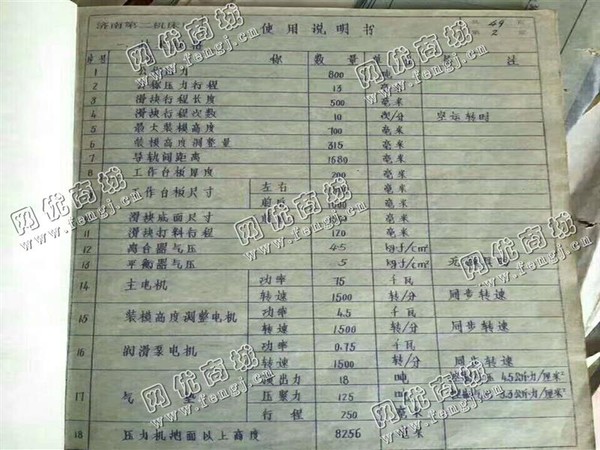 济南第二机床
使用说明书
共 49 页
第 2 页
序号 名 称 数量 单位 备 注
1 公称力 800 吨
2 公称压力行程 13 毫米
3 滑块行程长度 500 毫米
4 滑块行程次数 10 次/分 空运转时
5 最大装模高度 700 毫米
6 装模高度调整量 315 毫米
7 导轨间距离 1680 毫米
8 工作台板厚度 200 毫米
工作台板尺寸 左右 毫米
毫米
滑块底面尺寸 毫米
11 滑块打料行程 170 毫米
12 离合器气压 4.5 kgf/cm²
13 平衡器气压 5 kgf/cm²
14 主电机 功率 75 千瓦
转速 1500 转/分 同步转速
15 装模高度调整电机 功率 4.5 千瓦
转速 1500 转/分 同步转速
16 润滑泵电机 功率 0.75 千瓦
转速 1500 转/分 同步转速
17 气垫 顶出力 18 吨 4.5公斤力/厘米²
压紧力 125 吨
行程 250 毫米
18 压力机地面以上高度 8256 毫米
网优商城
www.femgj.cn